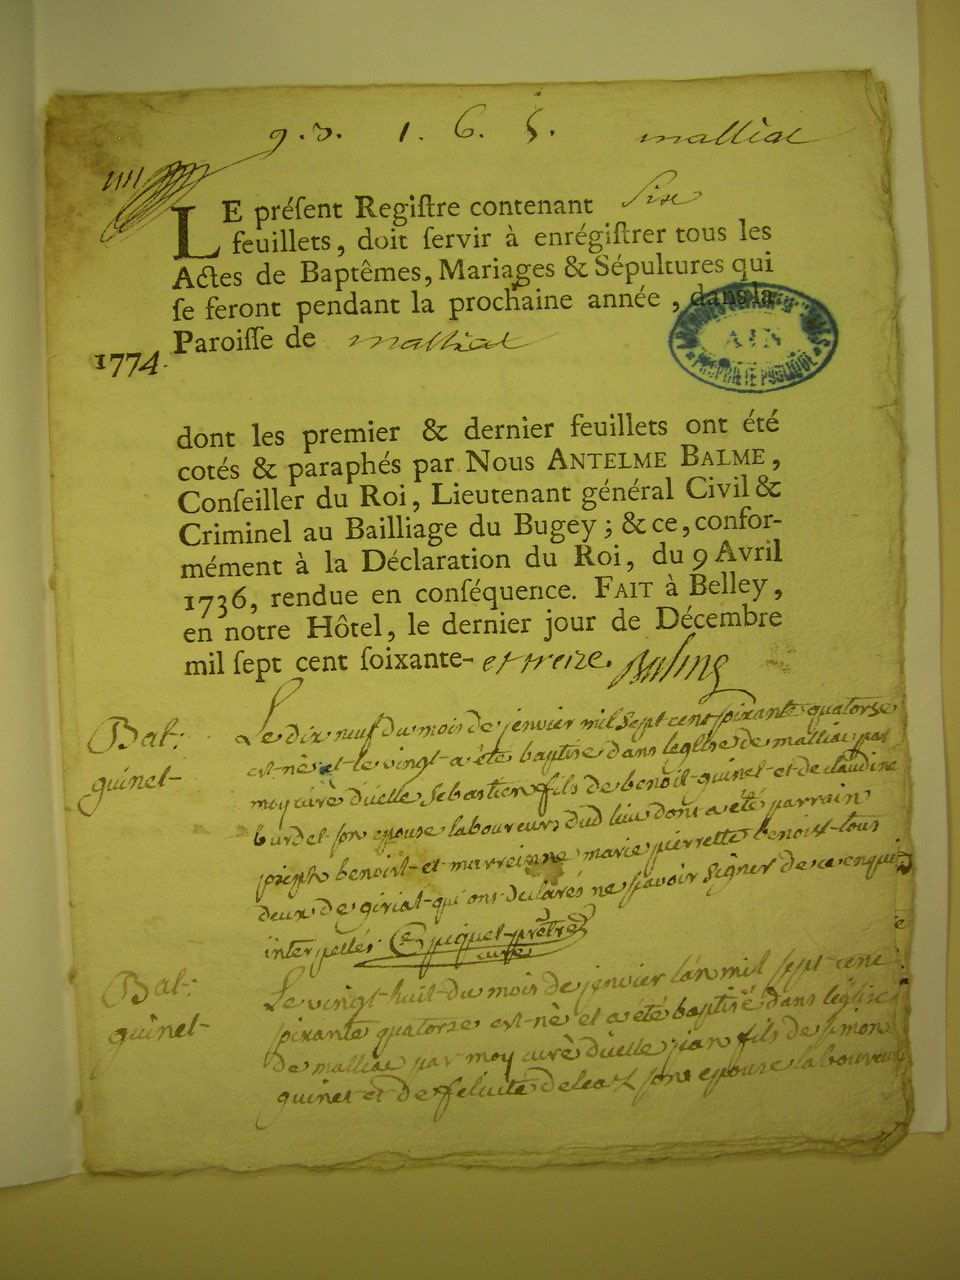 9.3. 1. 6. 5. malliat
LE préſent Regiſtre contenant Six
feuillets, doit ſervir à enrégiſtrer tous les
Actes de Baptêmes, Mariages & Sépultures qui
ſe feront pendant la prochaine année, dans la
Paroiſſe de malliat
1774.
ARCHIVES
AIN
PROPRIETE PUBLIQUE
dont les premier & dernier feuillets ont été
cotés & paraphés par Nous ANTELME BALME,
Conſeiller du Roi, Lieutenant général Civil &
Criminel au Bailliage du Bugey; & ce, confor-
mément à la Déclaration du Roi, du 9 Avril
1736, rendue en conſéquence. FAIT à Belley,
en notre Hôtel, le dernier jour de Décembre
mil ſept cent ſoixante- et treize. Balme
Bat:
guinet
Le dix neuf du mois de jenvier mil sept cent soixante quatorse
est né et le vingt a été baptise dans leglise de malliat par
moy curé d'icelle sebastien fils de benoit guinet et de claudine
burdet son epouse laboureurs dud lieu dont a été parrain
joseph benoist et marreinne marie pierrette benoist tous
deux de giriat qui ont declarés ne sçavoir signer de ce enquis
interpellés puquet prêtre
curé
Bat:
guinet
Le vingt huit du mois de jenvier l'an mil sept cent
soixante quatorse est né et a été baptisé dans l'église
de malliat par moy curé d'icelle jean fils de simon
guinet et de felicité deleaz son epouse laboureurs